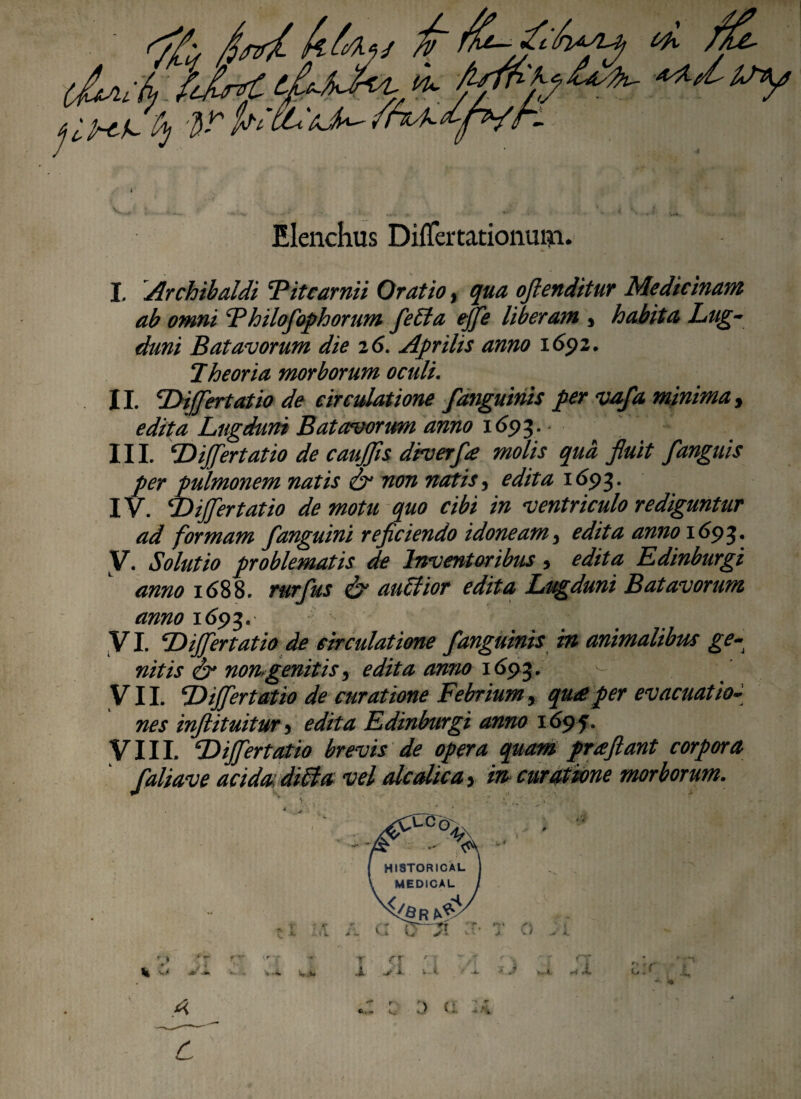 This book belongs to the Library in the
Charity School erected in and was
given by Dr William
Elenchus Diſſertationum.
I. Archibaldi Pitcarnii Oratio, qua oſtenditur Medicinam
ab omni Philoſophorum ſecta eſſe liberam, habita Lug-
duni Batavorum die 26. Aprilis anno 1692.
Theoria morborum oculi.
II. Diſſertatio de circulatione ſanguinis per vaſa minima,
edita Lugduni Batavorum anno 1693.
III. Diſſertatio de cauſſis diverſæ molis quâ fluit ſanguis
per pulmonem natis & non natis, edita 1693.
IV. Diſſertatio de motu quo cibi in ventriculo rediguntur
ad formam ſanguini reficiendo idoneam, edita anno 1693.
V. Solutio problematis de Inventoribus, edita Edinburgi
anno 1688. rurſus & auctior edita Lugduni Batavorum
anno 1693.
VI. Diſſertatio de circulatione ſanguinis in animalibus ge-
nitis & non genitis, edita anno 1693.
VII. Diſſertatio de curatione Febrium, quæ per evacuatio-
nes inſtituitur, edita Edinburgi anno 1695.
VIII. Diſſertatio brevis de opera quam præſtant corpora
ſaliave acida dicta vel alcalica, in curatione morborum.
WELLCOME
HISTORICAL
MEDICAL
LIBRARY
A
C